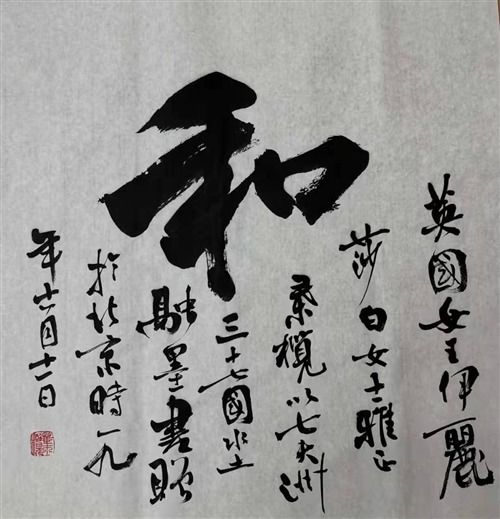 和
英國女王伊麗
莎白女士雅正
以七大洲
三十七國水土
融墨書贈
於北京時一九
年 月十一日